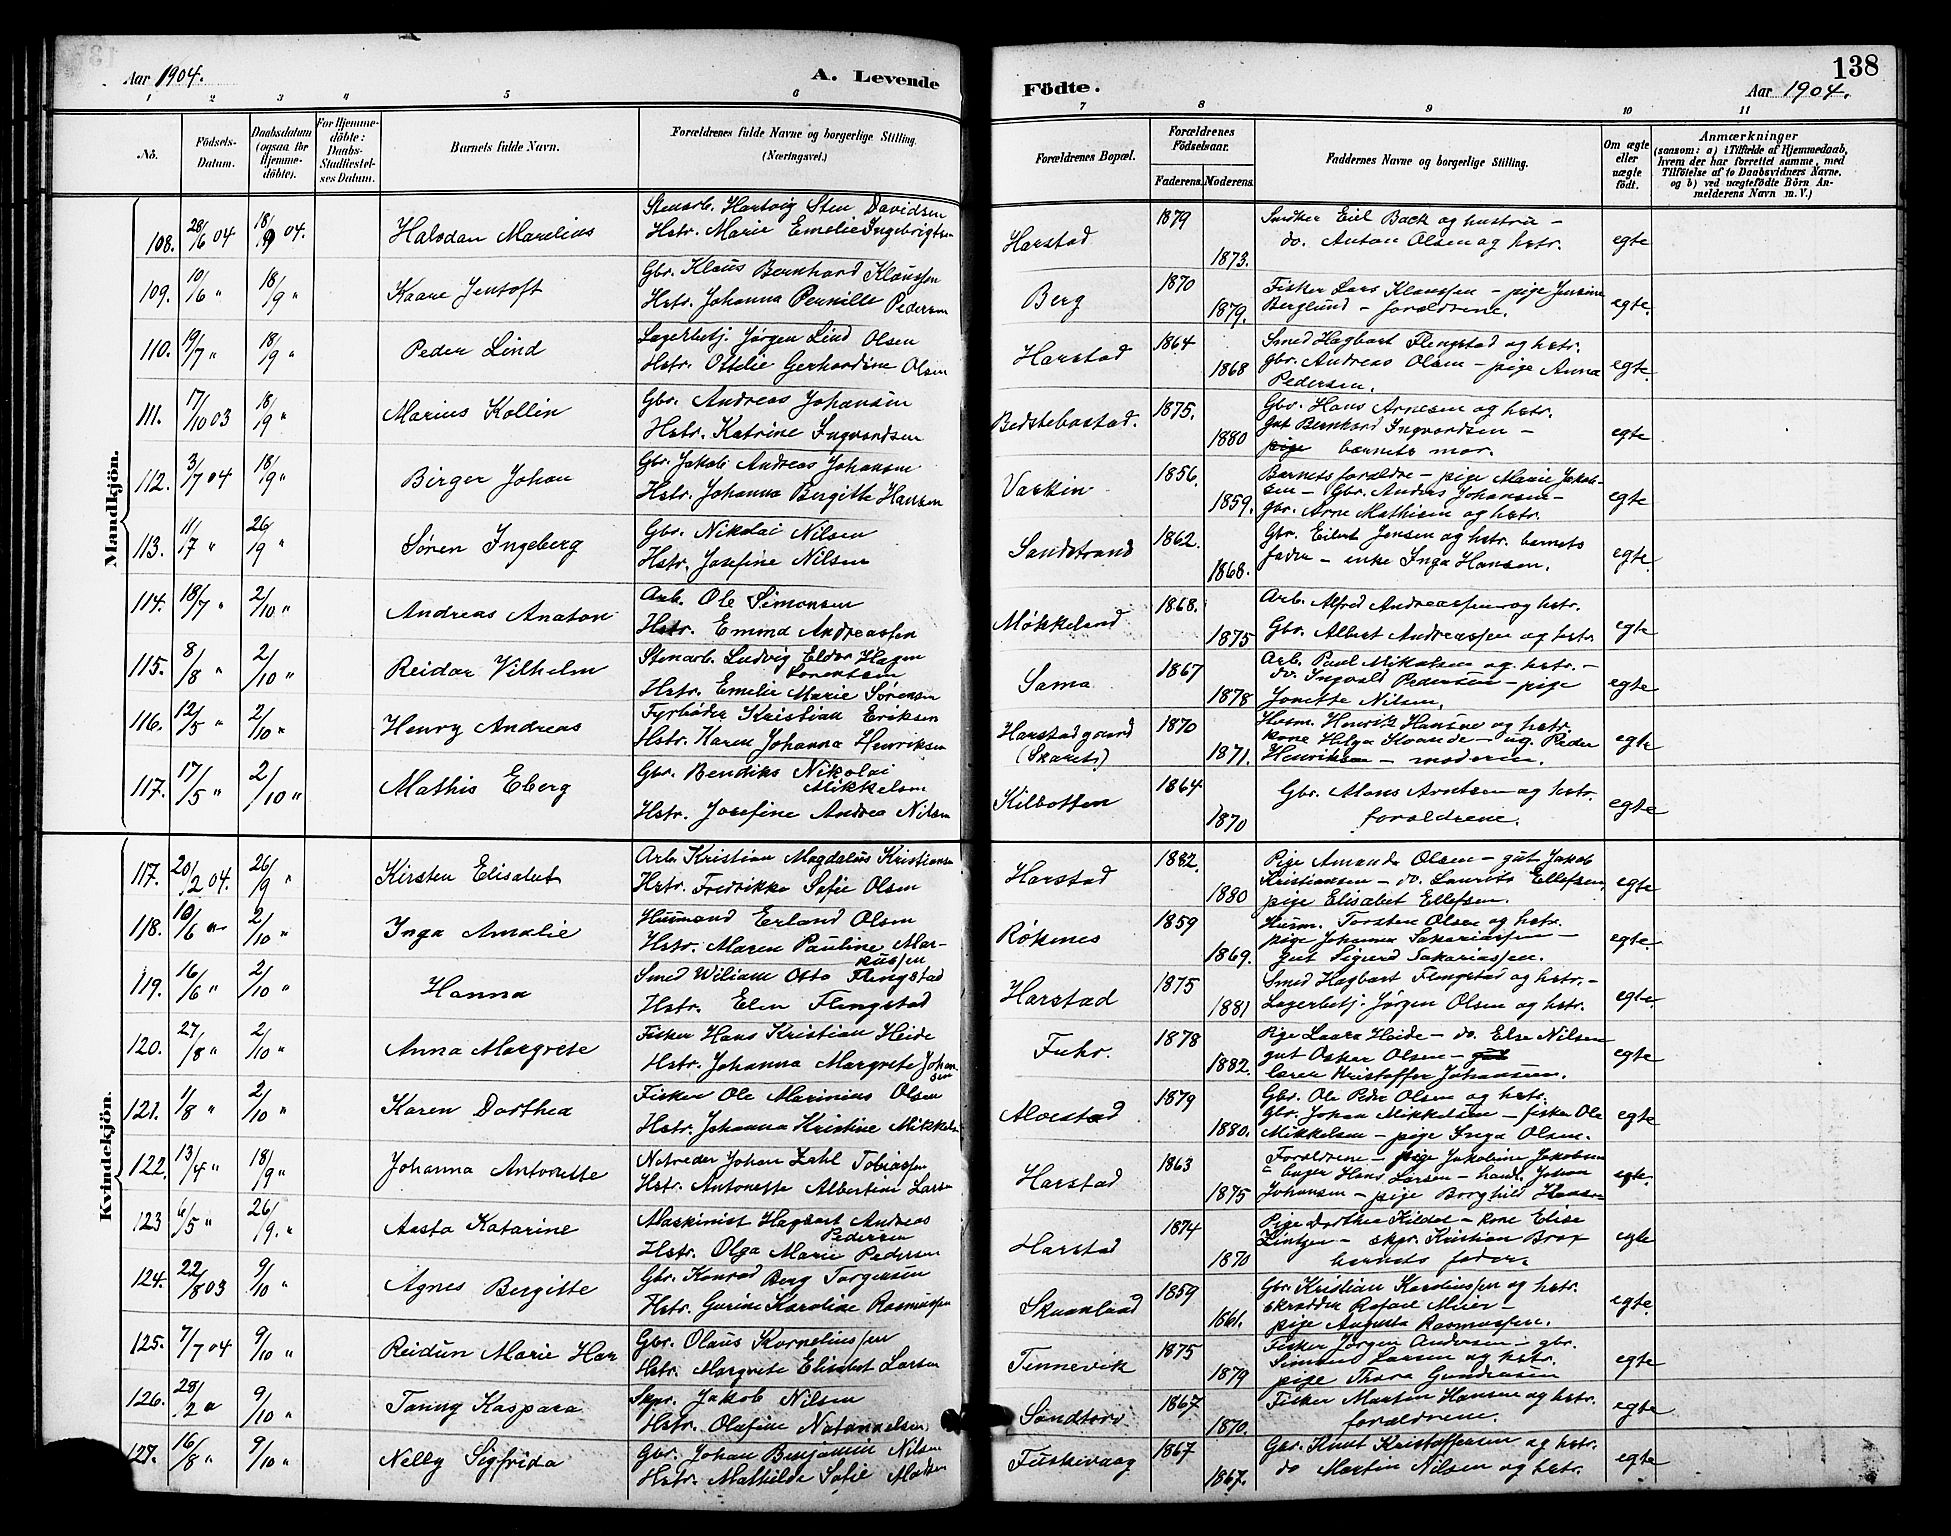 Aar 1904.
A. Levende
Födte.
138
Aar 1904.
1 2 3 4 5 6 7 8 9 10 11
No.
Födsels-Datum.
Daabsdatum (ogsaa for Hjemmedöbte).
For Hjemmedöbte: Daabs-Stadfæstelses Datum.
Barnets fulde Navn.
Forældrenes fulde Navne og borgerlige Stilling. (Næringsvei.)
Forældrenes Bopæl.
Forældrenes Födselsaar.
Faderens. Moderens.
Faddernes Navne og borgerlige Stilling.
Om ægte eller uægte födt.
Anmærkninger
(saasom: a) i Tilfælde af Hjemmedaab, hvem der har forrettet samme, med Tilföielse af to Daabsvidners Navne, og b) ved uægtefödte Börn Anmelderens Navn m. V.)
Mandkjön.
108. 28/6 04 18/9 04. Halvdan Marelius Stenarb. Hartvig Sten Davidsen
Hstr. Marie Emelie Ingebrigtsen Harstad 1879 1873. Smöker Eiel Back og hustru -
do. Anton Olsen og hstr. egte
109. 10/6 " 18/9 " Kaare Jentoft Gbr. Klaus Bernhard Klaussen
Hstr. Johanna Pernille Pedersen Berg 1870 1879. Fisker Lars Klaussen - pige Jensine
Berglund - forældrene. egte.
110. 19/7 " 18/9 " Peder Lind Lagerbetj. Jørgen Lind Olsen
Hstr. Ottelie Gerhardine Olsen Harstad 1864 1868 Smed Hagbart Flengstad og hstr.
gbr. Andreas Olsen - pige Anna
Pedersen. egte.
111. 17/10 03 18/9 " Marius Kollin Gbr. Andreas Johansen
Hstr. Katrine Ingvardsen Bedstebostad. 1875. 1880 Gbr. Hans Arnesen og hstr.
gut Bernhard Ingvardsen -
pige barnets mor. egte
112. 3/7 04 18/9 " Birger Johan Gbr. Jakob Andreas Johansen
Hstr. Johanna Bergitte Hansen Vaskin 1856. 1859. Barnets forældre - pige Marie Jakob-
sen - Gbr. Anders Johansen -
gbr. Arne Mathisen og hstr. egte
113. 11/7 " 26/9 " Søren Ingeberg Gbr. Nikolai Nilsen
Hstr. Josefine Nilsen Sandstrand 1862. 1868. Gbr. Eilert Jensen og hstr. barnets
fader - enke Inga Hansen. egte.
114. 18/7 " 2/10 " Andreas Anaton Arb. Ole Simonsen
Hstr. Emma Andreassen Møkkeland 1868. 1875 Arb. Alfred Andreassen og hstr.
Gbr. Albert Andreassen og hstr. egte
115. 8/8 " 2/10 " Reidar Vilhelm Stenarb. Ludvig Eldor Hagen
Sørensen
Hstr. Emelie Marie Sørensen Sama 1867 1878 Arb. Paul Mikalsen og hstr. -
do. Ingvald Pedersen - pige
Jonette Nilsen. egte
116. 12/5 " 2/10 " Henry Andreas Fyrbøder Kristian Eriksen
Hstr. Karen Johanna Henriksen Harstadgaard
(Skarets) 1870 1871. Husm. Henrik Hansen og hstr.
kone Helga Kvande - ug. Peder
Henriksen - moderen. egte
117. 17/5 " 2/10 " Mathis Eberg Gbr. Bendiks Nikolai
Mikkelsen
Hstr. Josefine Andrea Nilsen Kilbotten 1864 1870 Gbr. Mons Arntsen og hstr.
forældrene. egte
Kvindekjön.
117. 20/2 04. 26/9 " Kirsten Elisabet Arb. Kristian Magdalus Kristiansen
Hstr. Fredrikke Sofie Olsen Harstad 1882. 1880 Pige Amanda Olsen - gut Jakob
Kristiansen - do. Laurits Ellefsen,
pige Elisabet Ellefsen. egte
118. 10/6 " 2/10 " Inga Amalie Husmand Erland Olsen
Hstr. Maren Pauline Mar-
kussen Røkenes 1859 1869. Husm. Torsten Olsen og hstr.
pige Johanna Sakariassen -
gut Sigurd Sakariassen. egte.
119. 16/6 " 2/10 " Hanna Smed Wiliam Otto Flengstad
Hstr. Elen Flengstad Harstad 1875 1881 Smed Hagbart Flengstad og hstr. -
Lagerbetj. Jørgen Olsen og hstr. egte.
120. 27/8 " 2/10 " Anna Margrete Fisker Hans Kristian Heide
Hstr. Johanna Margrete Johan-
sen Fuhr. 1878 1882. Pige Laura Heide - do. Else Nilsen
gut Oskar Olsen - gut
lærer Kristoffer Johansen. egte
121. 1/8 " 2/10 " Karen Dorthea Fisker Ole Marinius Olsen
Hstr. Johanna Kristine Mikkelsen Alvestad 1879 1880. Gbr. Ole Peder Olsen og hstr.
Gbr. Johan Mikkelsen - fisker Ole
Mikkelsen - pige Inga Olsen. egte
122. 13/4 " 18/9 " Johanna Antonette Notreder Johan Zahl Tobiassen
Hstr. Antonette Albertine Larsen Harstad 1863 1875 Forældrene - pige Jakobine Jakobsen
- bager Hans Larsen - handl. Johan
Johansen - pige Borghild Hansen egte.
123 6/5 " 26/9. " Aasta Katarine Maskinist Hagbart Andreas
Pedersen
Hstr. Olga Marie Pedersen Harstad 1874 1870 Pige Dorthea Kildal - kone Elise
Lintzen - skpr. Kristian Brox
barnets fader. egte
124. 22/8 03 9/10 " Agnes Bergitte Gbr. Konrad Berg Torgersen
Hstr. Gurine Karoline Rasmussen Skaanland 1859 1861. Gbr. Kristian Karoliussen og hstr.
skrædder Rafael Meier -
pige Augusta Rasmussen. egte.
125. 7/7 04 9/10 " Reidun Marie Har Gbr. Olaus Korneliussen
Hstr. Margrete Elisabet Larsen Tennevik 1875 1879 Fisker Jørgen Andersen - gbr.
Simon Larsen og hstr.
pige Thora Gundersen egte
126. 28/2 " 9/10 " Tanny Kaspara Skpr. Jakob Nilsen
Hstr. Olufine Natanaelsen Sandtorv 1867 1870. Fisker Martin Hansen og hstr.
forældrene. egte
127. 16/8 " 9/10 " Nelly Sigfrida Gbr. Johan Benjamin Nilsen
Hstr. Mathilde Sofie Madsen Fuskevaag 1867 1867. Gbr. Knut Kristoffersen og hstr.
do Martin Nilsen og hstr. egte